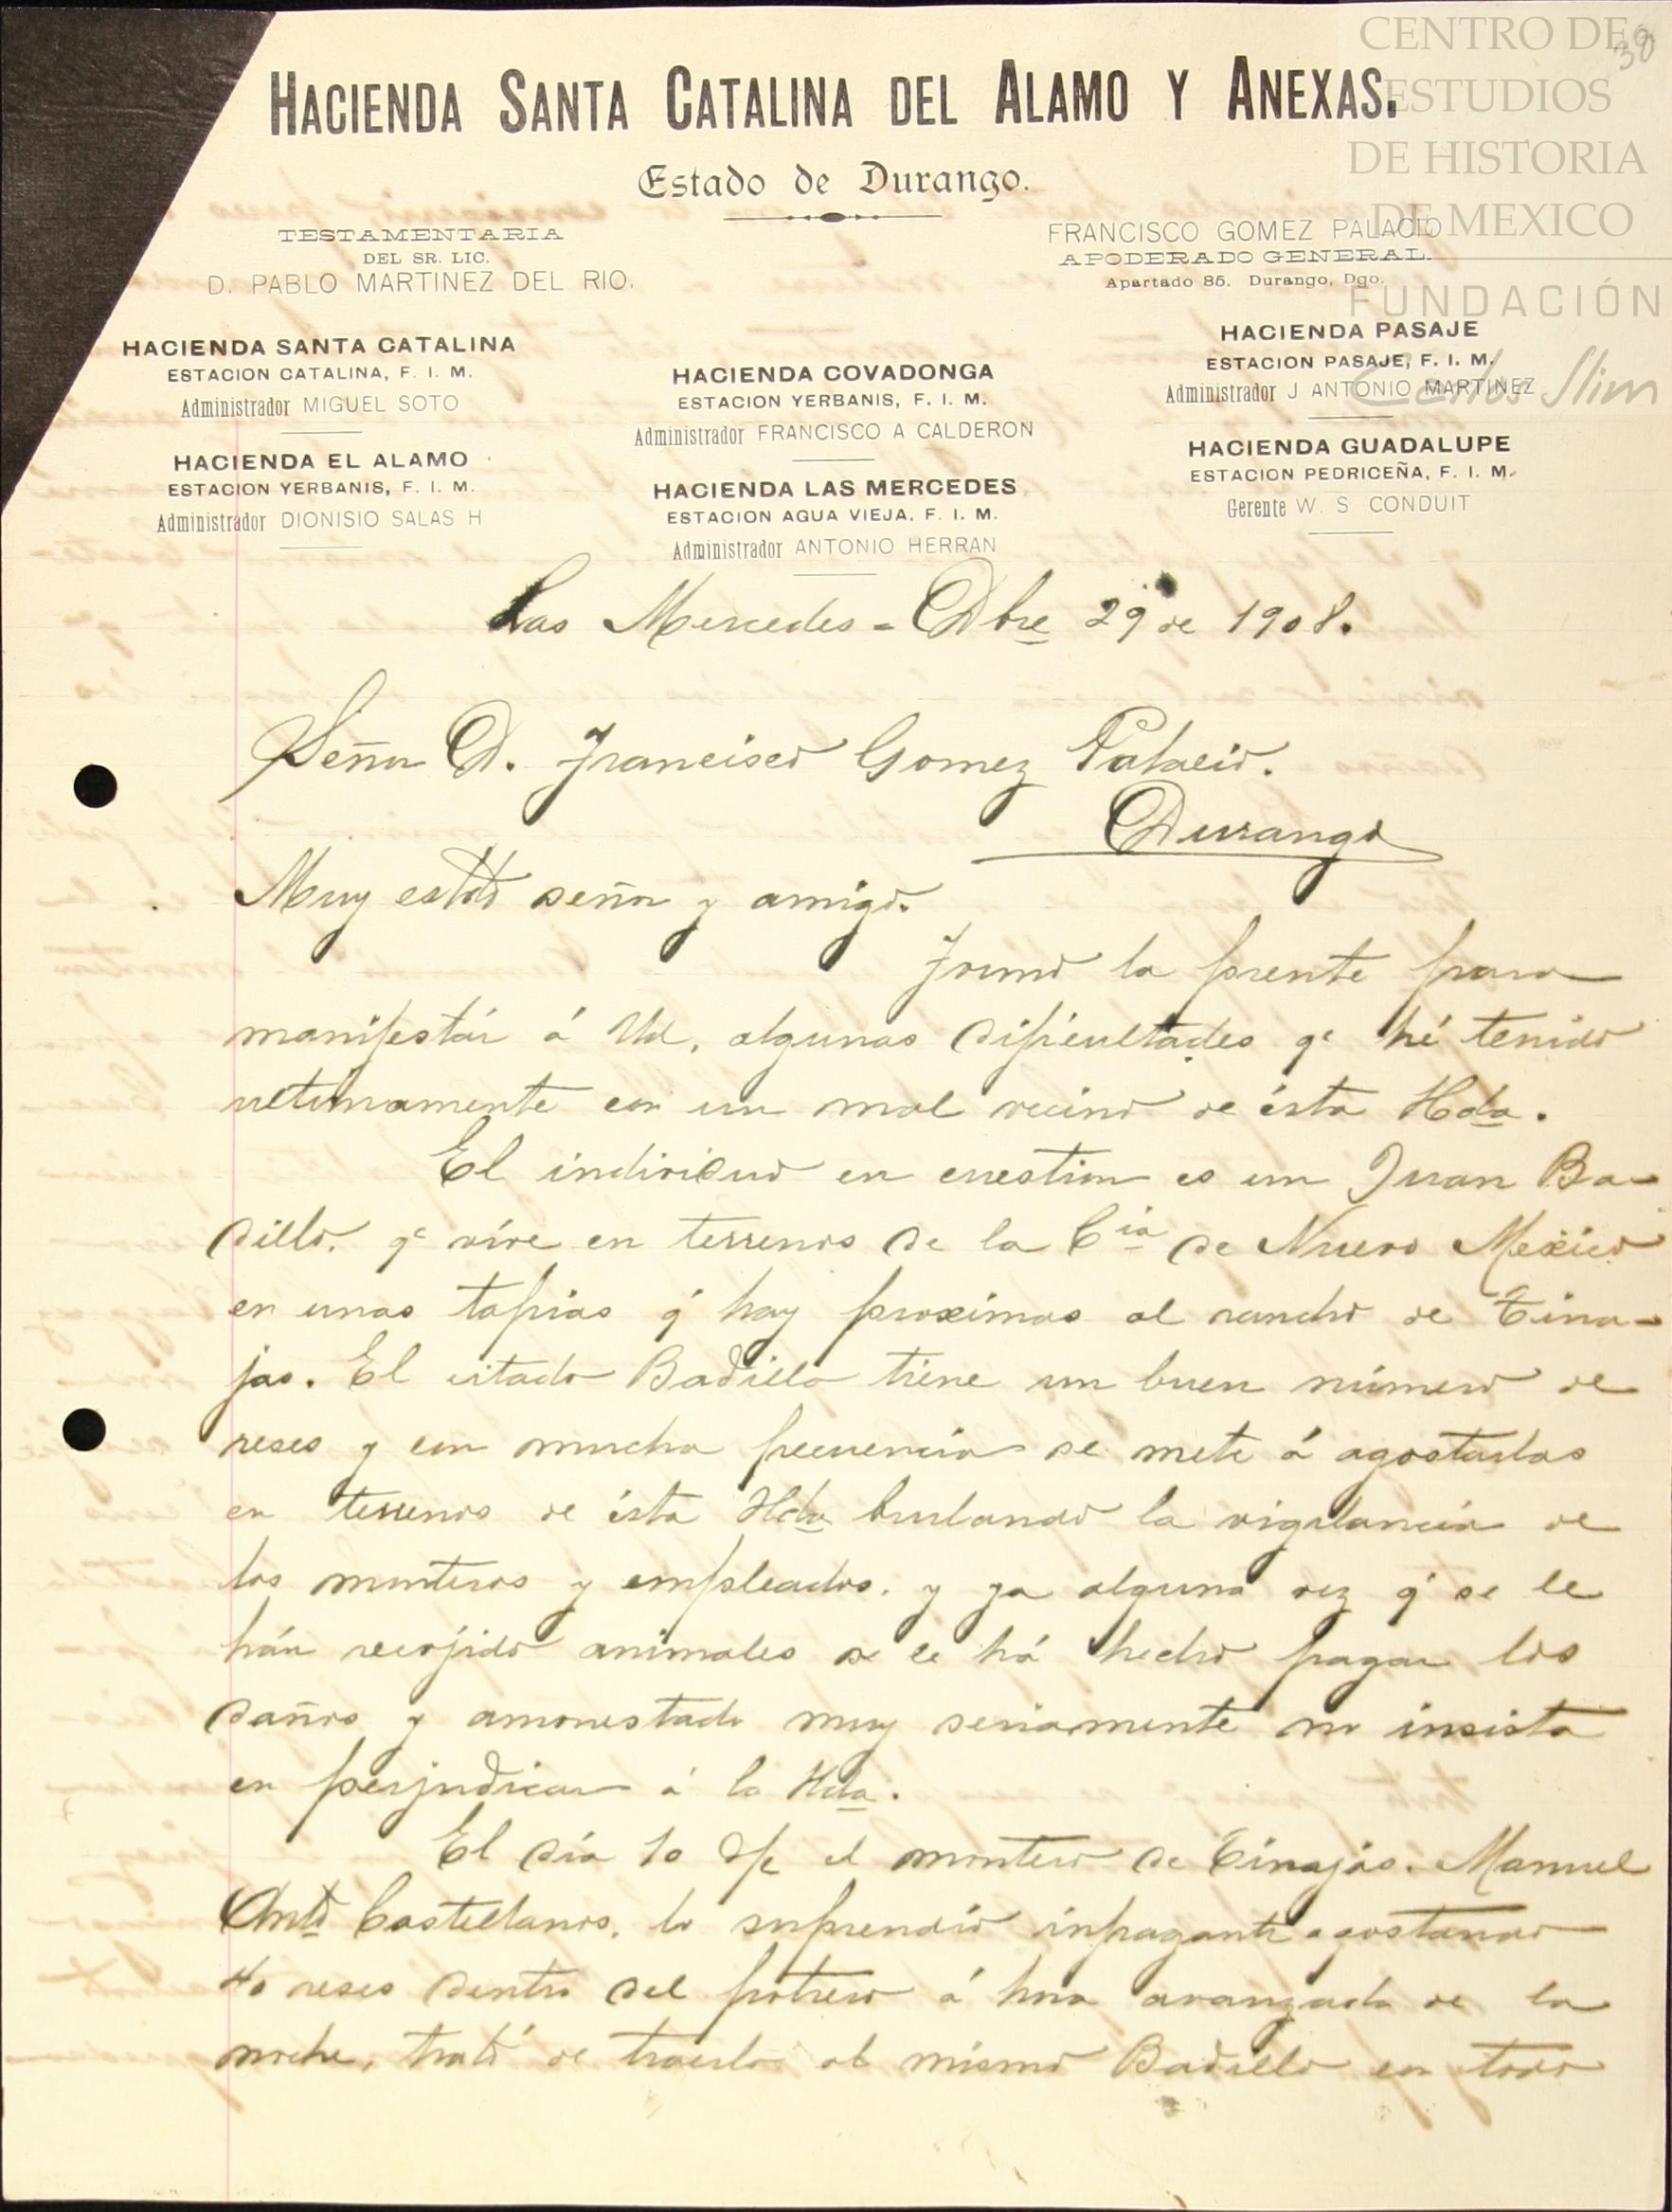 CENTRO DE
ESTUDIOS
DE HISTORIA
DE MEXICO
FUNDACIÓN
Carlos Slim
38
HACIENDA SANTA CATALINA DEL ALAMO Y ANEXAS.
Estado de Durango.
TESTAMENTARIA
DEL SR. LIC.
D. PABLO MARTINEZ DEL RIO.
FRANCISCO GOMEZ PALACIO
APODERADO GENERAL.
Apartado 85. Durango, Dgo.
HACIENDA SANTA CATALINA
ESTACION CATALINA, F. I. M.
Administrador MIGUEL SOTO
HACIENDA EL ALAMO
ESTACION YERBANIS, F. I. M.
Administrador DIONISIO SALAS H
HACIENDA COVADONGA
ESTACION YERBANIS, F. I. M.
Administrador FRANCISCO A CALDERON
HACIENDA LAS MERCEDES
ESTACION AGUA VIEJA. F. I. M.
Administrador ANTONIO HERRAN
HACIENDA PASAJE
ESTACION PASAJE, F. I. M.
Administrador J ANTONIO MARTINEZ
HACIENDA GUADALUPE
ESTACION PEDRICEÑA, F. I. M.
Gerente W. S CONDUIT
Las Mercedes = Dbre 29 de 1908.
Señor D. Francisco Gomez Palacio.
Durango
Muy estdo señor y amigo.
Tomo la prente para
manifestár á Ud, algunas dificultades qe hé tenido
ultimamente con un mal vecino de ésta Hda.
El individuo en cuestion es un Juan Ba-
dillo. qe vive en terrenos de la Cia de Nuevo Mexico
en unas tapias q' hay proximas al rancho de Tina-
jas. El citado Badillo tiene un buen número de
reses y con mucha frecuencia se mete á agostarlas
en terrenos de ésta Hda burlando la vigilancia de
los monteros y empleados, y ya alguna vez q' se le
hán recojido animales se le há hecho pagar los
daños y amonestado muy seriamente no insista
en perjudicar á la Hda.
El día 10 el montero de Tinajas. Manuel
Anto Castellanos, lo surprendió infraganti agostando
40 reses dentro del potrero á hora avanzada de la
noche, trató de traerlo al mismo Badillo con todo